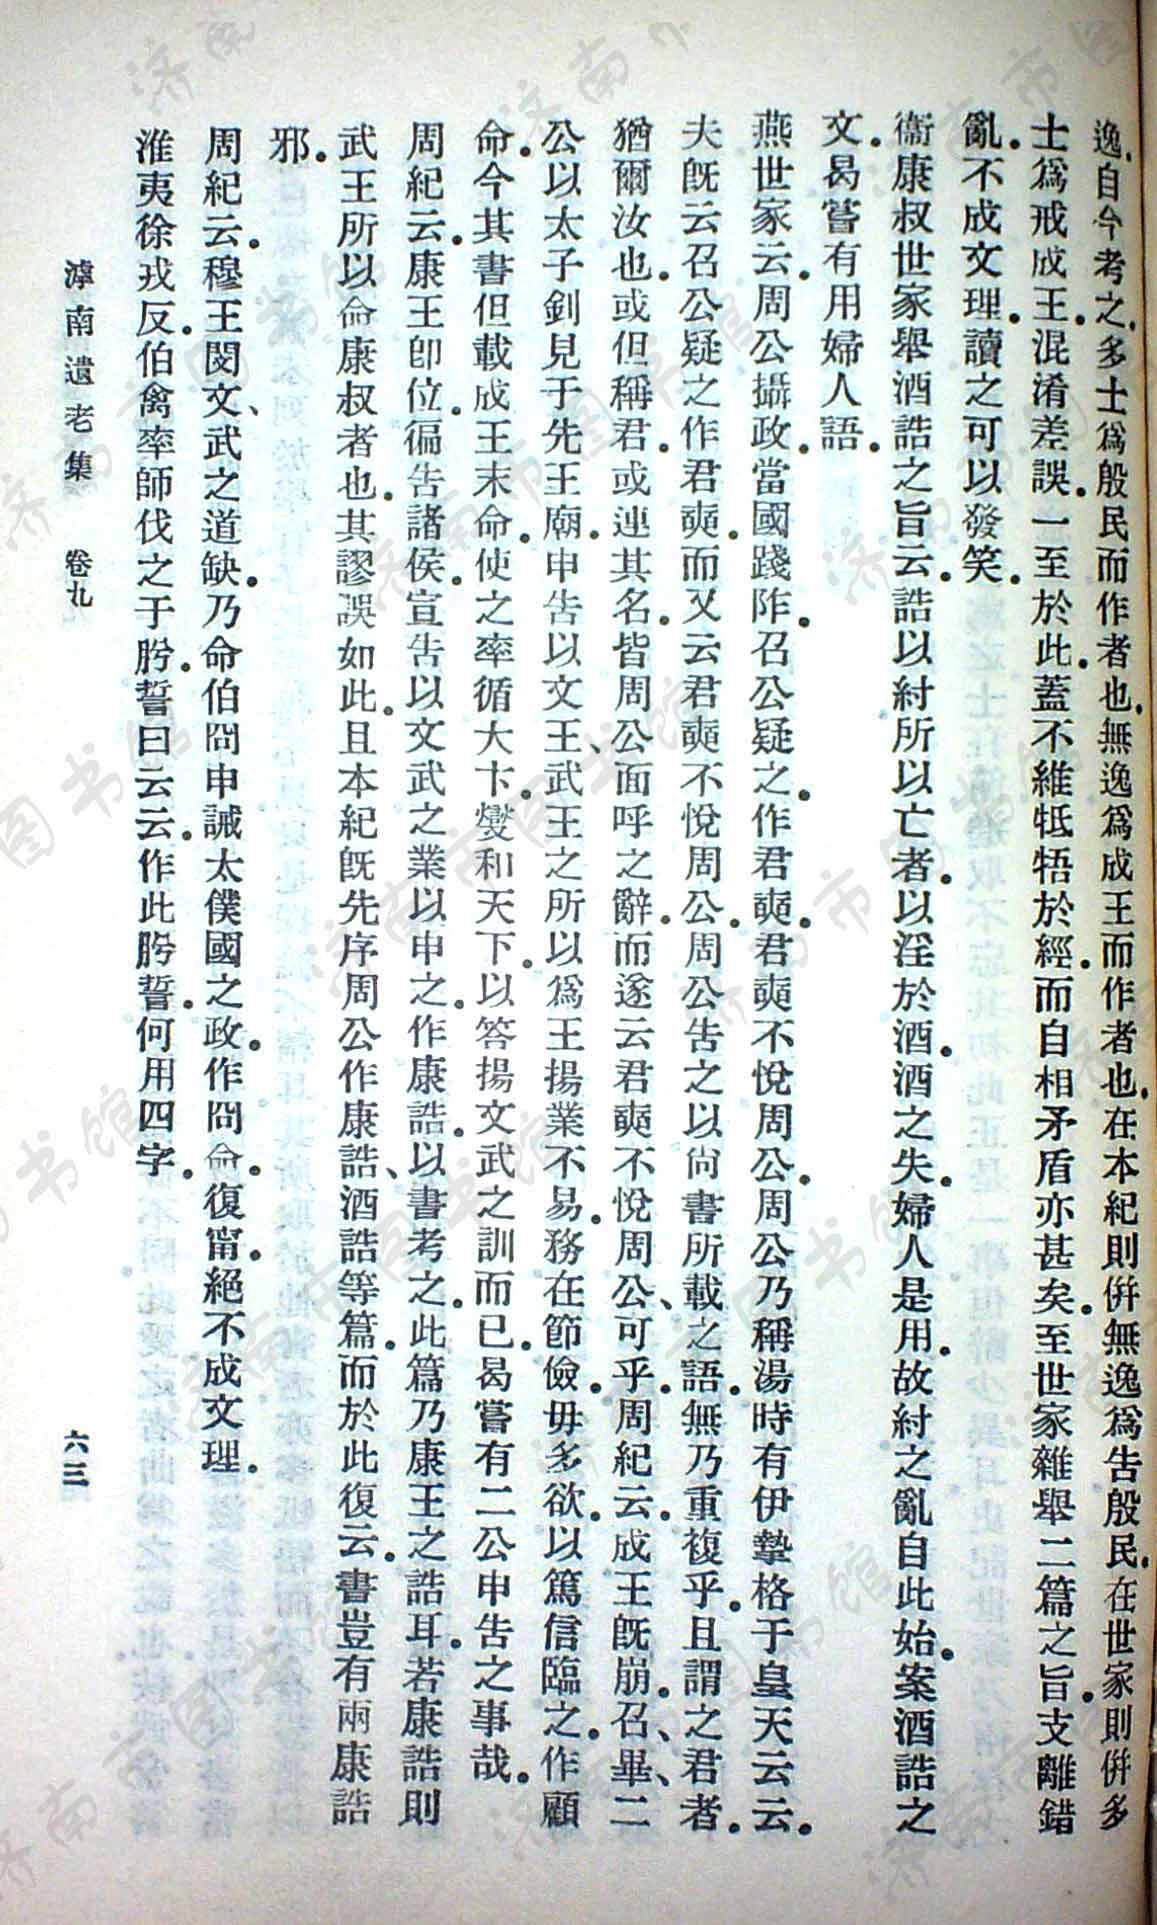 逸。自今考之。多士爲殷民而作者也。無逸爲成王而作者也。在本紀則併無逸爲告殷民。在世家則併多
士爲戒成王。混淆差誤。一至於此。蓋不維牴牾於經。而自相矛盾亦甚矣。至世家雜舉二篇之旨。支離錯
亂。不成文理。讀之可以發笑。
衞康叔世家舉酒誥之旨云。誥以紂所以亡者。以淫於酒。酒之失。婦人是用。故紂之亂自此始。案酒誥之
文。曷嘗有用婦人語。
燕世家云。周公攝政。當國踐阼。召公疑之。作君奭。君奭不悅周公。周公乃稱湯時有伊摯格于皇天云云。
夫旣云召公疑之作君奭。而又云君奭不悅周公。周公告之以尙書所載之語。無乃重複乎。且謂之君者。
猶爾汝也。或但稱君。或連其名。皆周公面呼之辭。而遂云君奭不悅周公、可乎。周紀云。成王旣崩。召、畢、二
公以太子釗見于先王廟。申告以文王、武王之所以爲王揚業不易。務在節儉。毋多欲。以篤信臨之。作顧
命。今其書但載成王末命。使之率循大卞。燮和天下。以答揚文武之訓而已。曷嘗有二公申告之事哉。
周紀云。康王卽位。徧告諸侯。宣告以文武之業以申之。作康誥。以書考之。此篇乃康王之誥耳。若康誥則
武王所以命康叔者也。其謬誤如此。且本紀旣先序周公作康誥、酒誥等篇。而於此復云。書豈有兩康誥
邪。
周紀云。穆王閔文、武之道缺。乃命伯冏申誡太僕國之政。作冏命。復甯。絕不成文理。
淮夷徐戎反。伯禽率師伐之于肹。誓曰云云。作此肹誓。何用四字。
滹南遺老集　卷九　六三
济南市图书馆